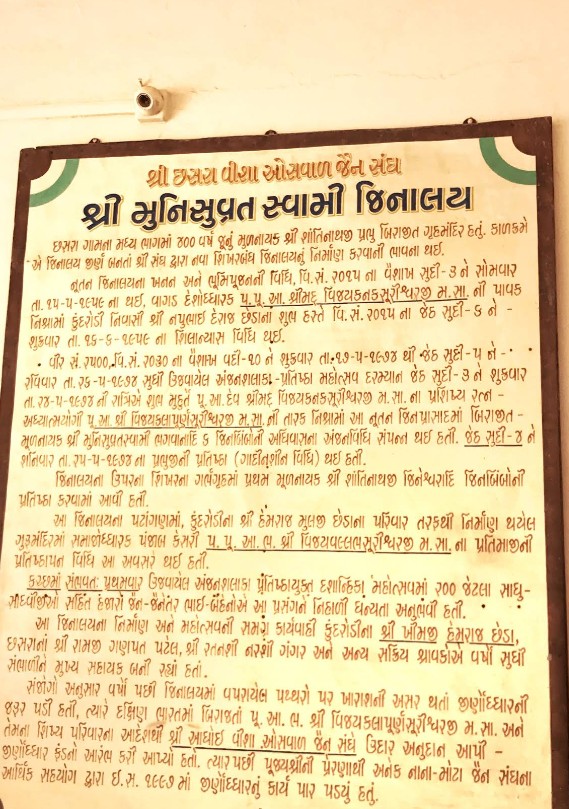 શ્રી છસરા વીશા ઓસવાળ જૈન સંઘ
શ્રી મુનિસુવ્રત સ્વામી જિનાલય
છસરા ગામના મધ્ય ભાગમાં ૪૦૦ વર્ષ જૂનું મૂળનાયક શ્રી શાંતિનાથજી પ્રભુ બિરાજીત ગૃહમંદિર હતું. કાળક્રમે
એ જિનાલય જીર્ણ બનતાં શ્રી સંઘ દ્વારા નવા શિખરબંધ જિનાલયનું નિર્માણ કરવાની ભાવના થઇ.
નૂતન જિનાલયના ખનન અને ભૂમિપૂજનની વિધિ, વિ.સં. ૨૦૧૫ ના વૈશાખ સુદી-૩ ને સોમવાર
તા. ૧૫-૫-૧૯૫૯ ના થઇ, વાગડ દેશોધ્ધારક પ.પૂ. આ. શ્રીમદ્ વિજયકનકસૂરીશ્વરજી મ.સા. ની પાવક
નિશ્રામાં કુંદરોડી નિવાસી શ્રી નપુભાઇ દેરાજ છેડાના શુભ હસ્તે વિ.સં. ૨૦૧૫ ના જેઠ સુદી-૬ ને -
શુક્રવાર તા. ૧૬-૬-૧૯૫૯ ના શિલાન્યાસ વિધિ થઇ.
વીર સં. ૨૫૦૦, વિ.સં. ૨૦૩૦ ના વૈશાખ વદી-૧૦ ને શુક્રવાર તા.૧૭-૫-૧૯૭૪ થી જેઠ સુદી-૫ ને -
રવિવાર તા. ૨૬-૫-૧૯૭૪ સુધી ઉજવાયેલ અંજનશલાકા-પ્રતિષ્ઠા મહોત્સવ દરમ્યાન જેઠ સુદી-૩ ને શુક્રવાર
તા. ૨૪-૫-૧૯૭૪ ની રાત્રિએ શુભ મુહૂર્તે પૂ. આ. દેવ શ્રીમદ્ વિજયકનકસૂરીશ્વરજી મ.સા. ના પ્રશિષ્ય રત્ન -
અધ્યાત્મયોગી પૂ. આ. શ્રી વિજયકલાપૂર્ણસૂરીશ્વરજી મ.સા. ની તારક નિશ્રામાં આ નૂતન જિનપ્રાસાદમાં બિરાજીત -
મૂળનાયક શ્રી મુનિસુવ્રતસ્વામી ભગવાનાદિ ૬ જિનબિંબોની અધિવાસના અંજનવિધિ સંપન્ન થઇ હતી. જેઠ સુદી-૪ ને
શનિવાર તા. ૨૫-૫-૧૯૭૪ ના પ્રભુજીની પ્રતિષ્ઠા (ગાદીનશીન વિધિ) થઇ હતી.
જિનાલયના ઉપરના શિખરના ગર્ભગૃહમાં પ્રથમ મૂળનાયક શ્રી શાંતિનાથજી જિનેશ્વરાદિ જિનબિંબોની
પ્રતિષ્ઠા કરવામાં આવી હતી.
આ જિનાલયના પટાંગણમાં, કુંદરોડીના શ્રી હેમરાજ મૂલજી છેડાના પરિવાર તરફથી નિર્માણ થયેલ
ગુરૂમંદિરમાં સમાજોધ્ધારક પંજાબ કેસરી પ. પૂ. આ. ભ. શ્રી વિજયવલ્લભસૂરીશ્વરજી મ.સા. ના પ્રતિમાજીની
પ્રતિષ્ઠાપન વિધિ આ અવસરે થઇ હતી.
કચ્છમાં સંભવત: પ્રથમવાર ઉજવાયેલ અંજનશલાકા પ્રતિષ્ઠાયુક્ત દશાન્હિકા મહોત્સવમાં ૨૦૦ જેટલા સાધુ-
સાધ્વીજીઓ સહિત હજારો જૈન-જૈનેતર ભાઇ-બહેનોએ આ પ્રસંગને નિહાળી ધન્યતા અનુભવી હતી.
આ જિનાલયના નિર્માણ અને મહોત્સવની સમગ્ર કાર્યવાહી કુંદરોડીના શ્રી ખીમજી હેમરાજ છેડા,
છસરાનાં શ્રી રામજી ગણપત પટેલ, શ્રી રતનશી નરશી ગંગર અને અન્ય સક્રિય શ્રાવકોએ વર્ષો સુધી
સંભાળીને મુખ્ય સહાયક બની રહ્યાં હતાં.
સંજોગો અનુસાર વર્ષો પછી જિનાલયમાં વપરાયેલ પથ્થરો પર ખારાશની અસર થતાં જીર્ણોધ્ધારની
જરૂર પડી હતી, ત્યારે દક્ષિણ ભારતમાં બિરાજતાં પૂ. આ. ભ. શ્રી વિજયકલાપૂર્ણસૂરીશ્વરજી મ.સા. અને
તેમના શિષ્ય પરિવારના આદેશથી શ્રી આધોઇ વીશા ઓસવાળ જૈન સંઘે ઉદાર અનુદાન આપી -
જીર્ણોધ્ધાર ફંડનો આરંભ કરી આપ્યો હતો. ત્યાર પછી પૂજ્યશ્રીની પ્રેરણાથી અનેક નાના-મોટા જૈન સંઘના
આર્થિક સહયોગ દ્વારા ઇ.સ. ૧૯૯૭ માં જીર્ણોધ્ધારનું કાર્ય પાર પડયું હતું.